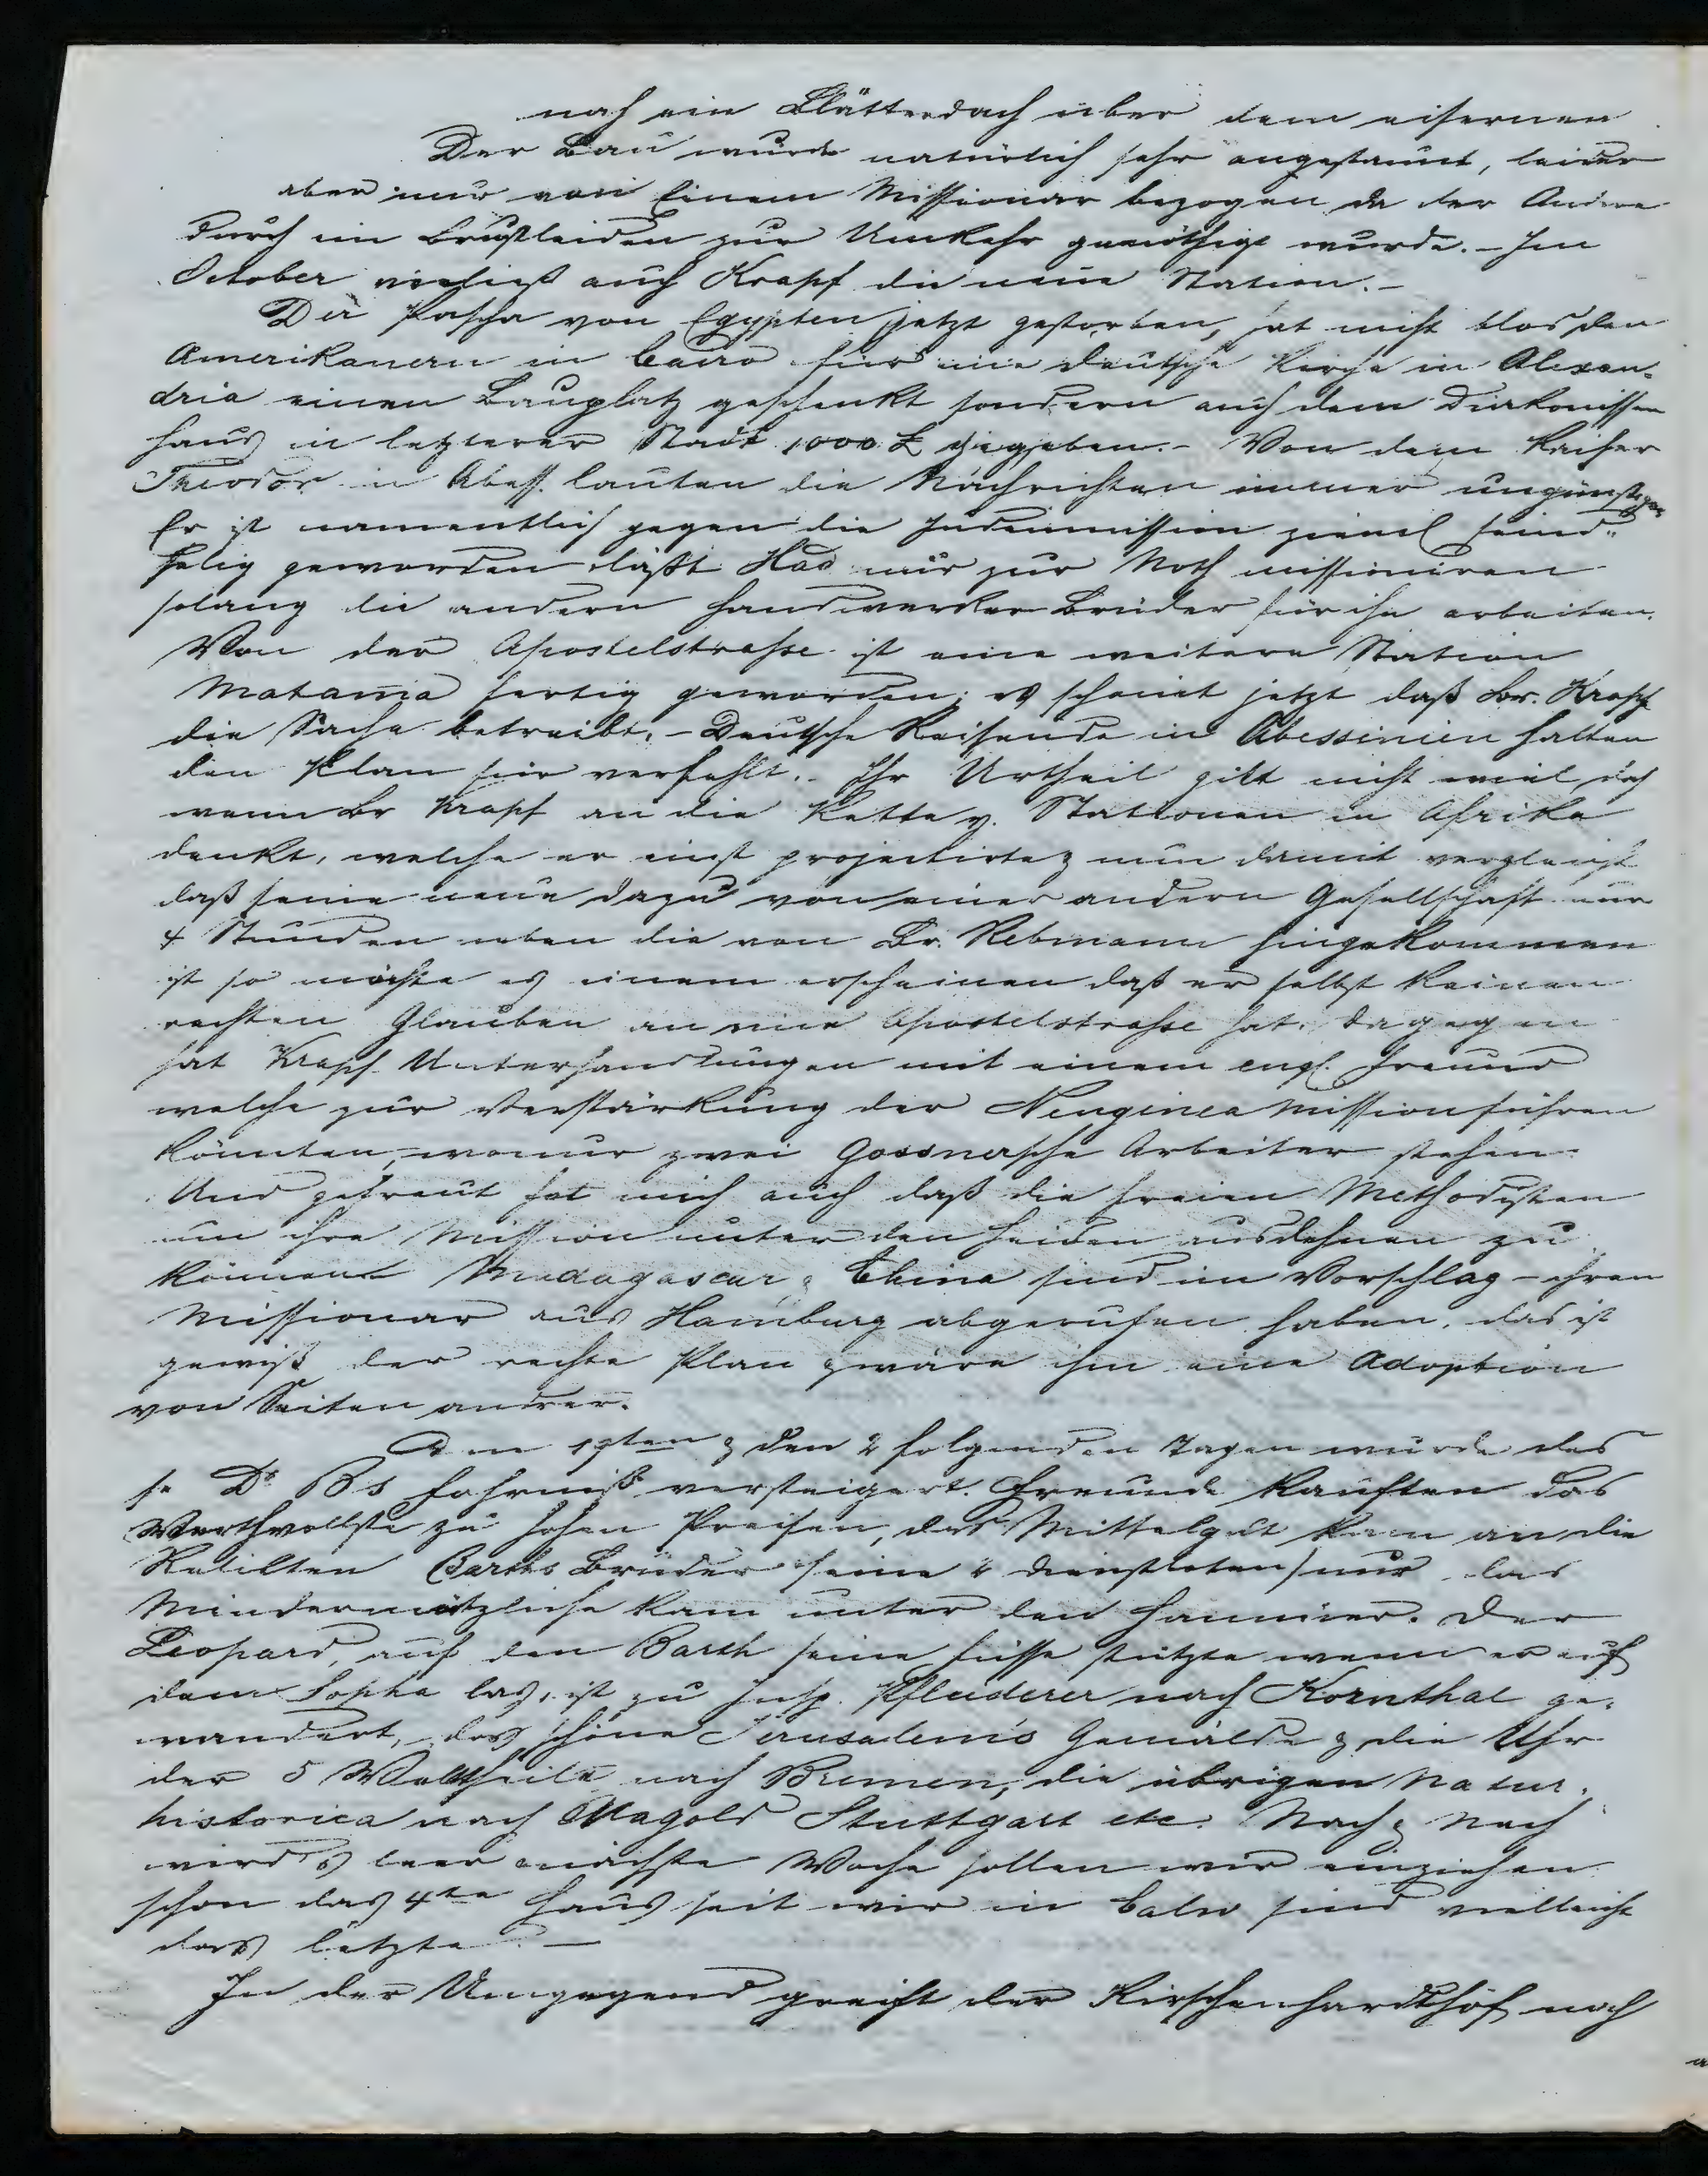 noch ein Blätterdach über dem eisernen
Der Bau wurde natürlich sehr angestaunt, leider
aber nur von Einem Missionar bezogen da der Andere
durch ein Brustleiden zur Umkehr genöthigt wurde. - Im
October verließ auch Krapf die neue Station. -
Der Pascha von Egypten jetzt gestorben, hat nicht blos den
Amerikanern in Cairo für eine deutsche Kirche in Alexan-
dria einen Bauplatz geschenkt sondern auch dem Diakonissen
haus in letzterer Stadt 1000 £ gegeben. - Von dem Kaiser
Theodor in Abess. lauten die Nachrichten immer ungünstiger
Er ist namentlich gegen die Judenmission zieml feind-
selig geworden läßt Has nur zur Noth missioniren
solang die andern Handwerker Brüder für ihn arbeiten.
Von der Apostelstrasse ist eine weitere Station
Matama fertig geworden; es scheint jetzt daß Br. Krapf
die Sache betreibt. - Deutsche Reisende in Abessinien halten
den Plan für verfehlt. Ihr Urtheil gilt nicht viel, doch
wenn Br Krapf an die Kette v. Stationen in Afrika
denkt, welche er einst projectirte & nun damit vergleicht
daß seine neue dazu von einer andern Gesellschaft nur
4 Stunden neben die von Br. Rebmann hingekommen
ist so möchte es einem erscheinen daß er selbst keinen
rechten Glauben an eine Apostelstrasse hat. Dagegen
hat Krapf Unterhandlungen mit einem engl. Freund
welche zur Verstärkung der Neuginea Mission führen
könnten, wo nur zwei Gossnersche Arbeiter stehen.
Und gefreut hat mich auch daß die freien Methodisten
um ihre Mission unter den Heiden ausdehnen zu
können Madagascar & China sind im Vorschlag - ihren
Missionar aus Hamburg abgerufen haben. das ist
gewiß der rechte Plan & wäre ihm eine Adoption
von Seiten andrer.
Den 19ten & den 2 folgenden Tagen wurde des
s. Dr Bs Fahrniß versteigert. Freunde kauften das
Werthvollste zu hohen Preisen, das Mittelgut kam an die
Barths Brüder seine Dienstboten) nur das
Mindernützliche kam unter den Hammer. Der
Leopard, auf den Barth seine Füsse stützte wenn er auf
dem Sopha las, ist zu Insp. Pfleiderer nach Kornthal ge-
wandert, das schöne Jerusalems Gemälde & die Uhr
der 5 Welttheile nach Bremen, die übrigen Natur-
historica nach Nagold Stuttgart etc. Nach & nach
wird's leer nächste Woche sollen wir einziehen
schon das 4te Haus seit wir in Calw sind vielleicht
das letzte. -
In der Umgegend greift der Kirschenhardthof noch